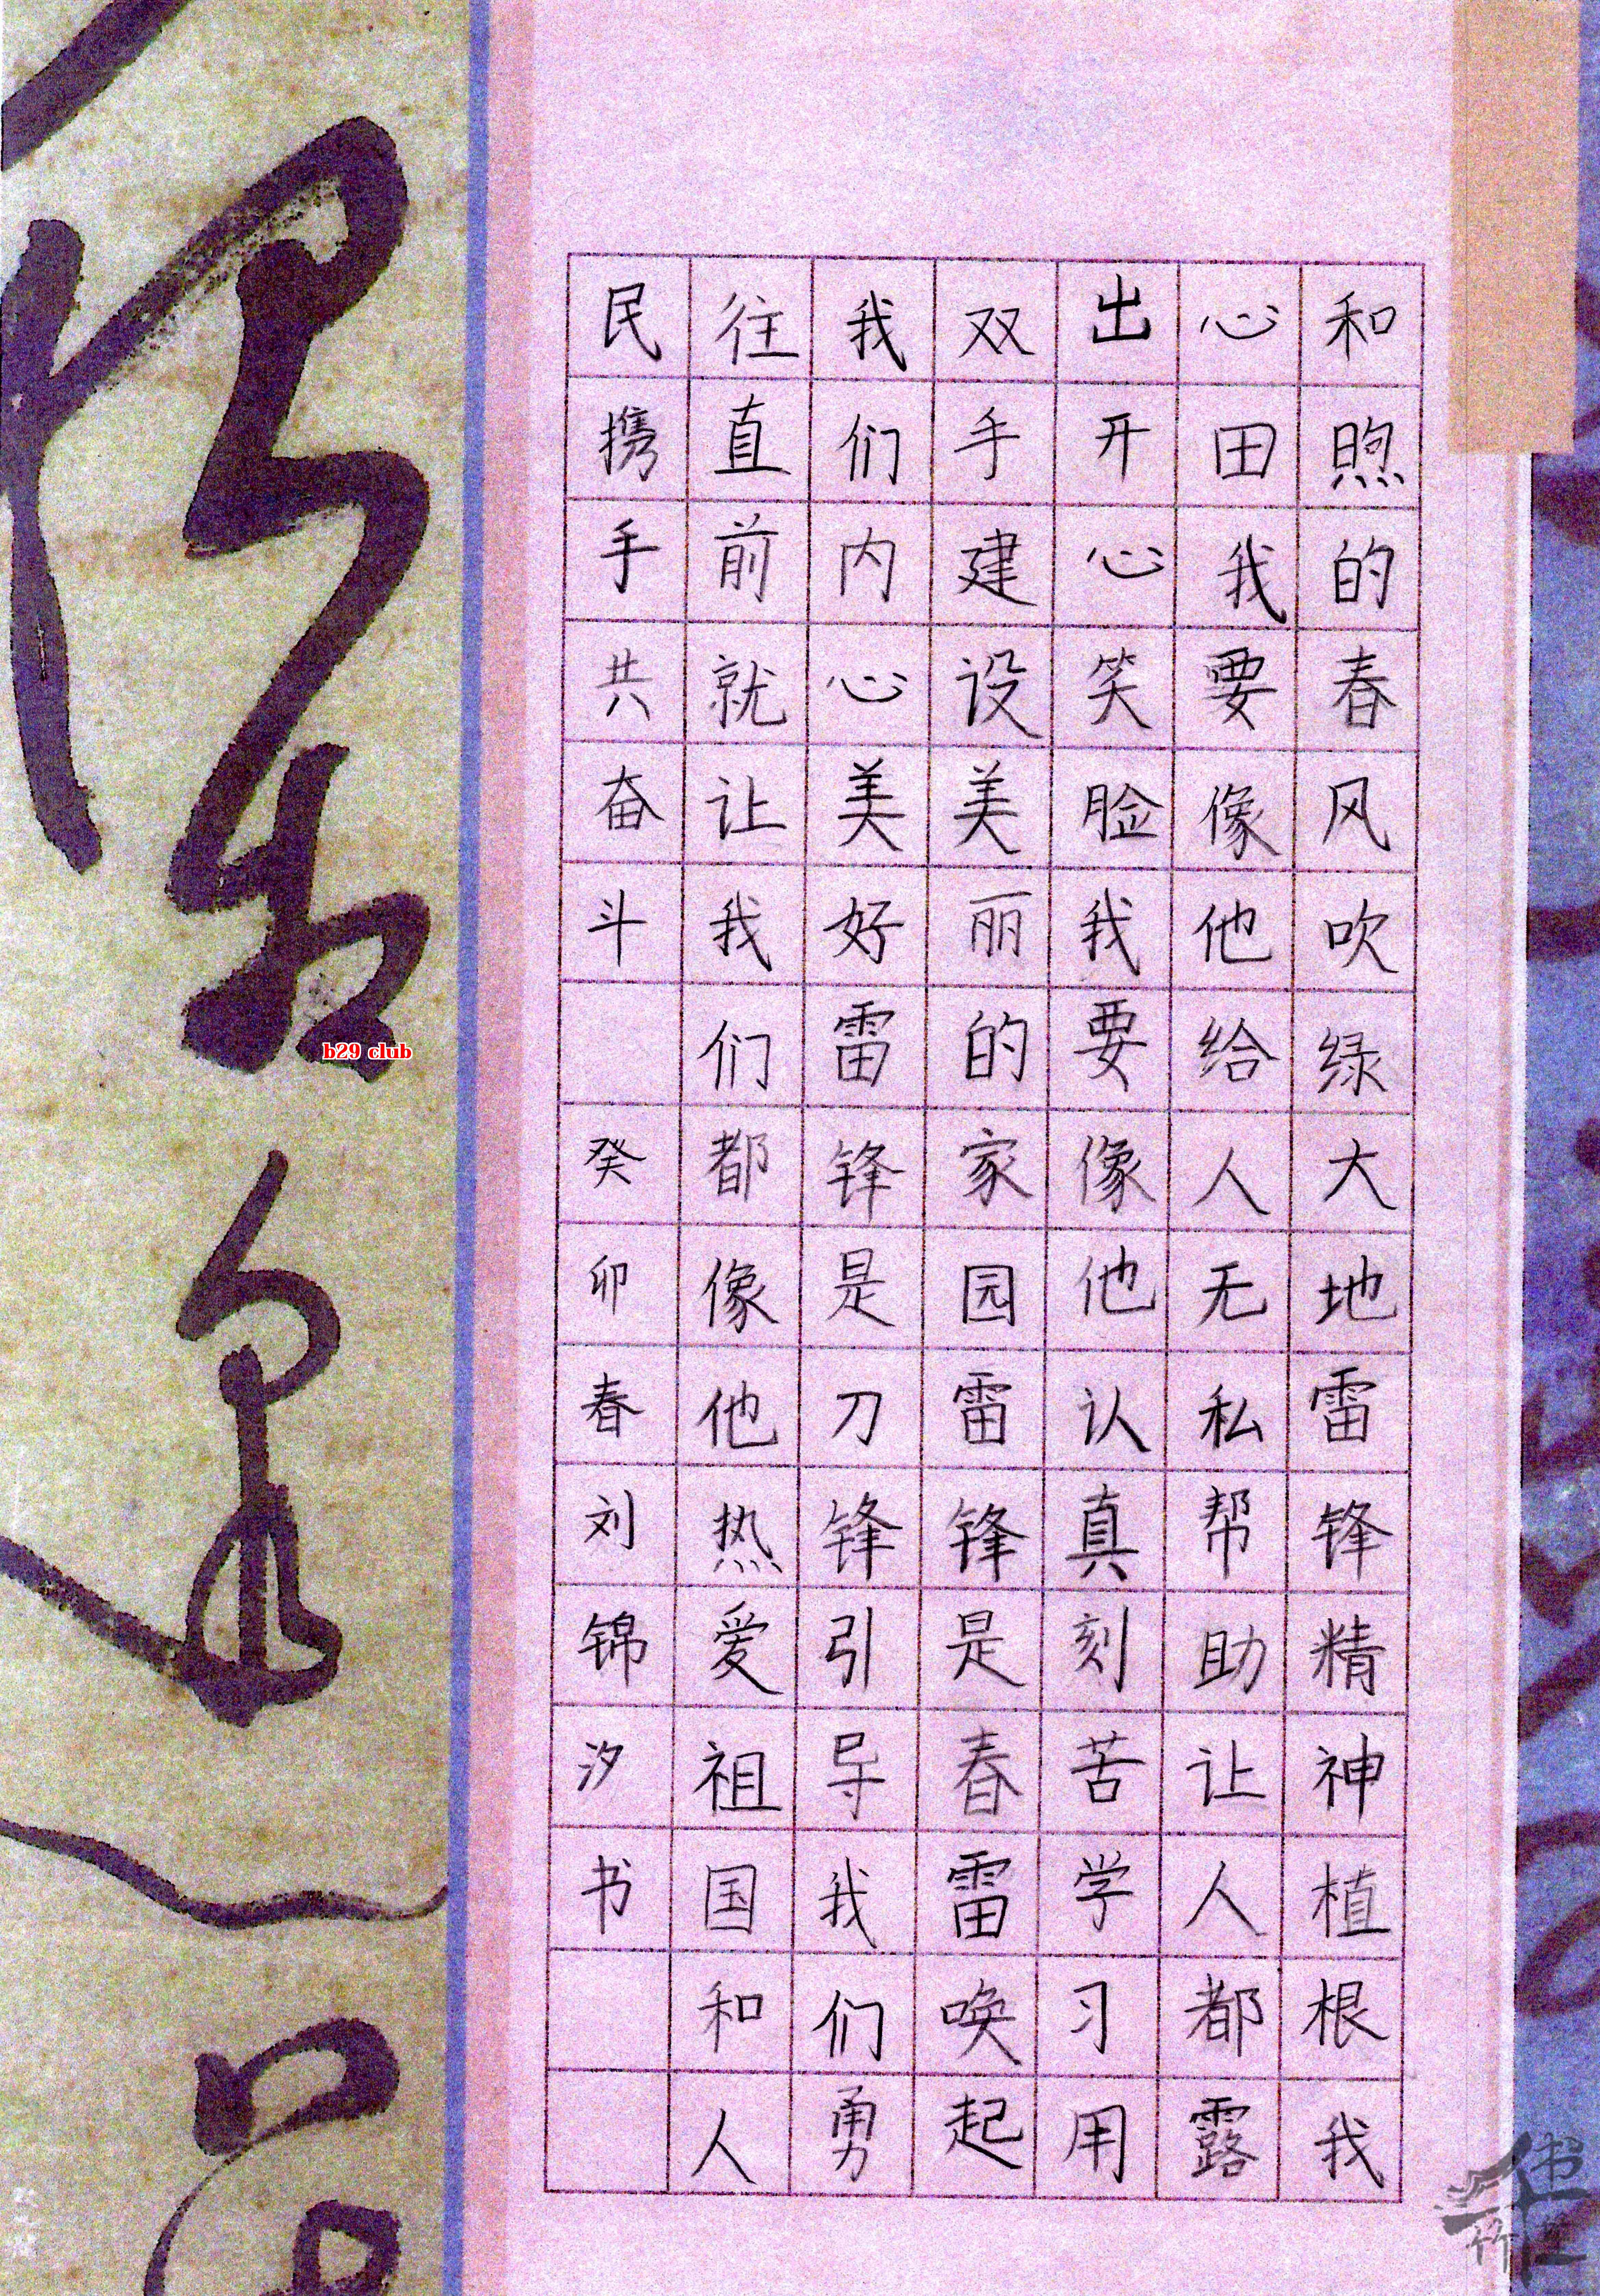 和煦的春风吹绿大地雷锋精神植根我
心田我要像他给人无私帮助让人都露
出开心笑脸我要像他认真刻苦学习用
双手建设美丽的家园雷锋是春雷唤起
我们内心美好雷锋是刀锋引导我们勇
往直前就让我们都像他热爱祖国和人
民携手共奋斗 癸卯春刘锦汐书
b29 club